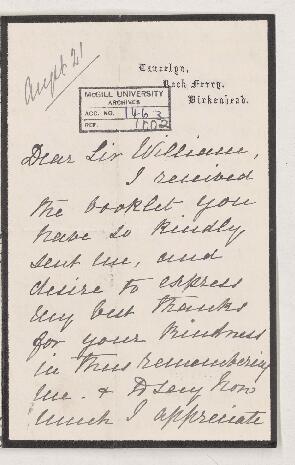 Augt 21
Tancelyn,
Rock Ferry,
Birkenhead.
McGILL UNIVERSITY
ARCHIVES
ACC. NO. 1463
REF. 1002
Dear Sir William,
I received
the booklet you
have so kindly
sent me, and
desire to express
my best thanks
for your kindness
in thus remembering
me. & I say how
much I appreciate